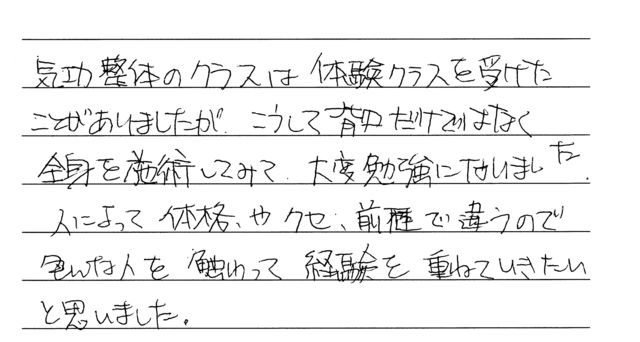 気功整体のクラスは体験クラスを受けた
ことがありましたが、こうして背中だけではなく
全身を施術してみて、大変勉強になりました。
人によって体格、やクセ、前種で違うので
色んな人を触わって経験を重ねていきたい
と思いました。